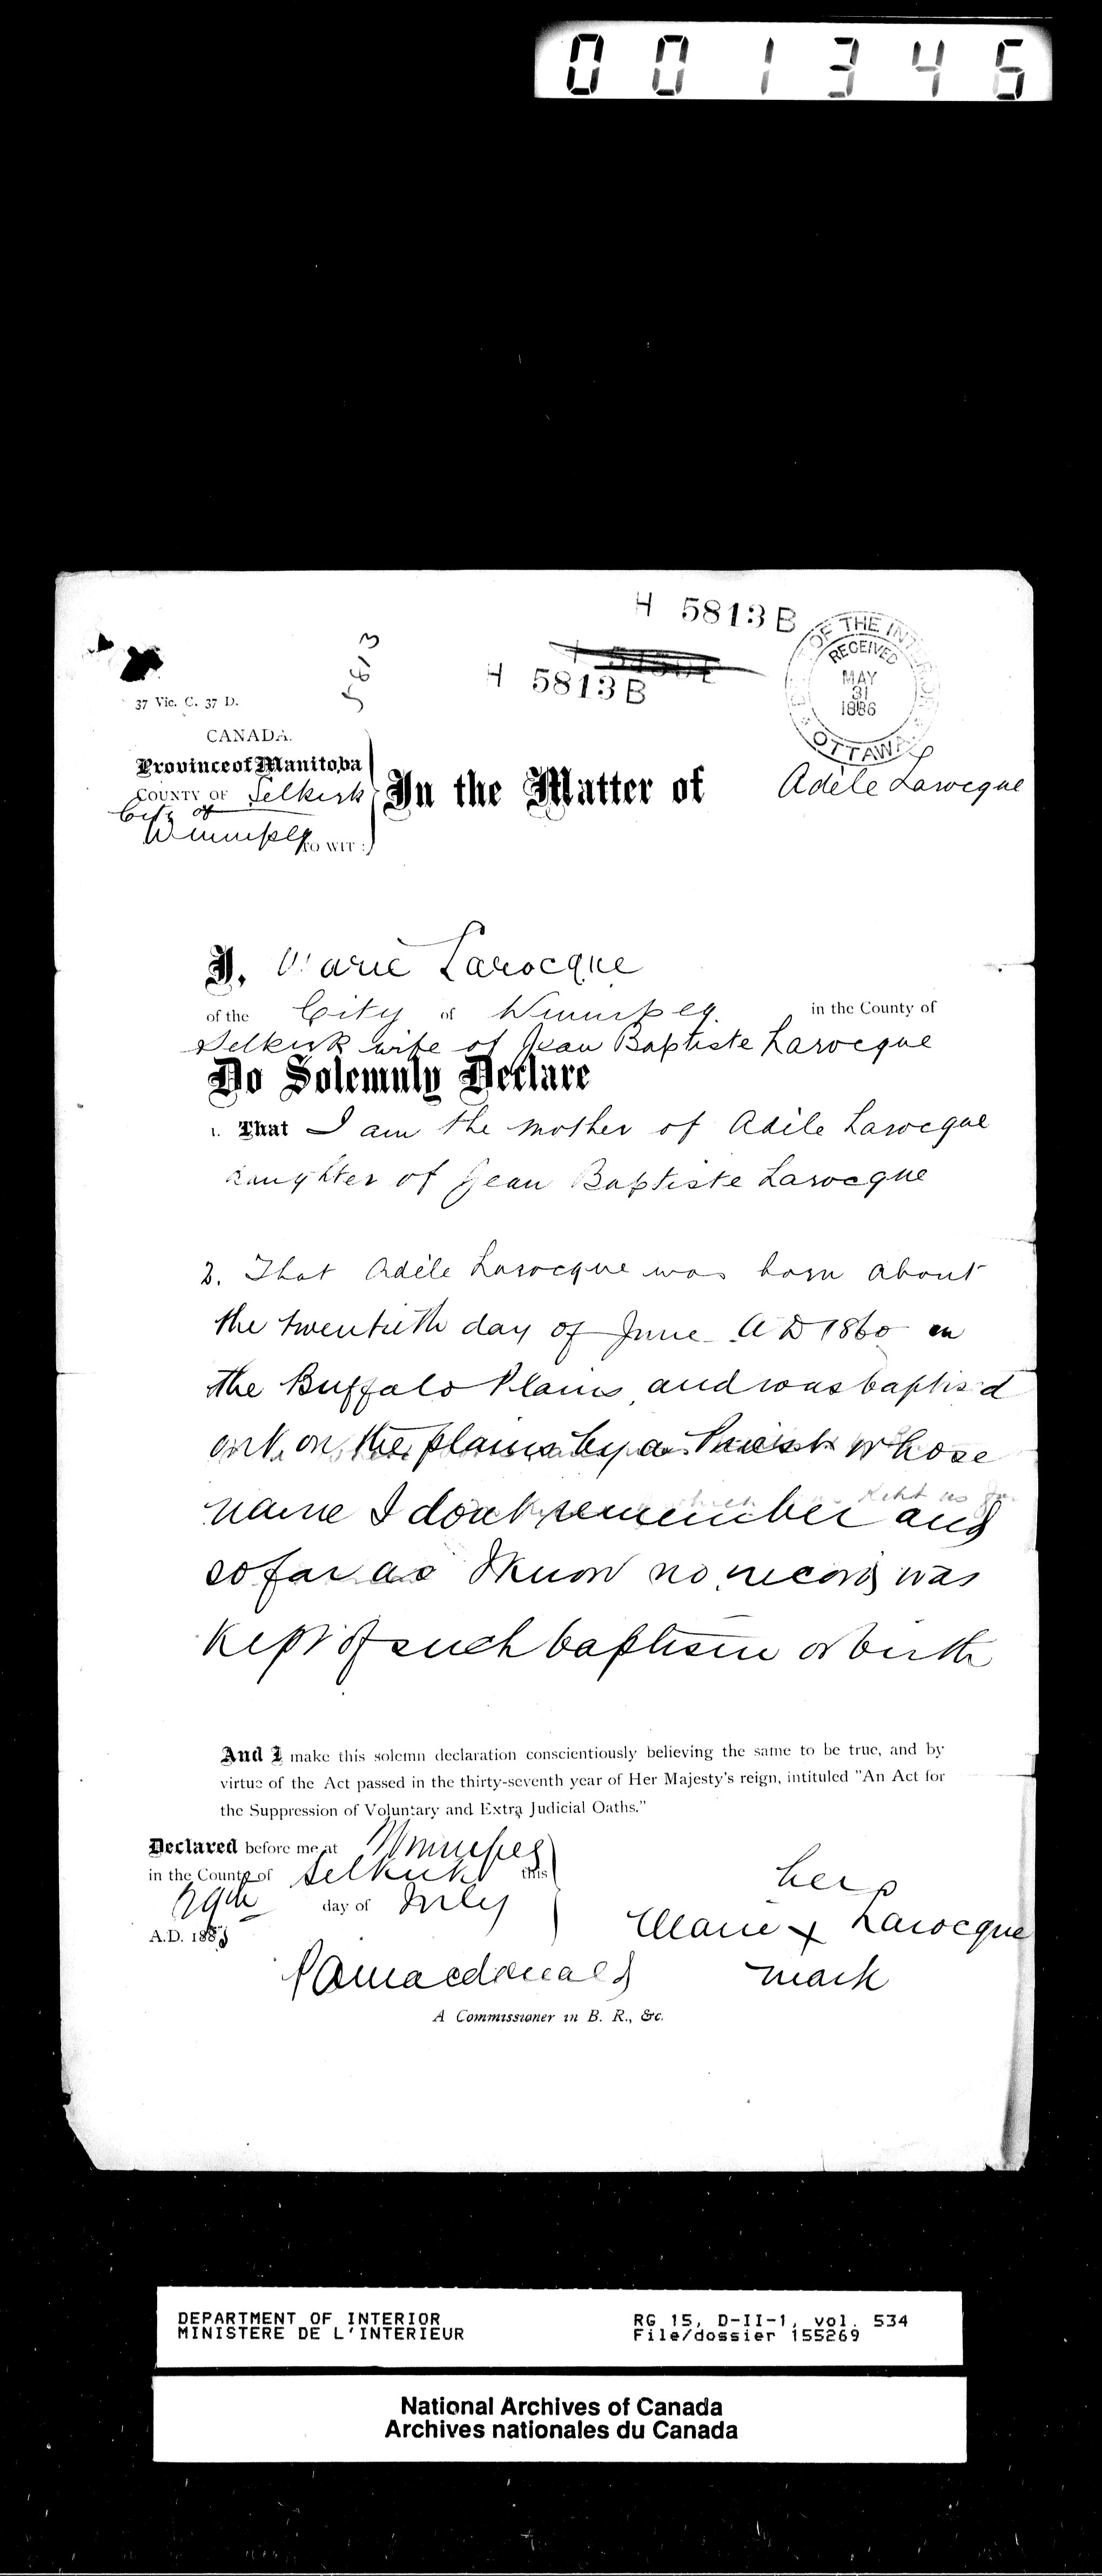 001345
H 5813 B
H 5813 B
5813
OF THE INTERIOR
RECEIVED
MAY
31
1886
OTTAWA
37 Vic. C. 37 D.
CANADA.
Province of Manitoba
COUNTY OF Selkirk
City of
Winnipeg TO WIT:
In the Matter of Adèle Larocque
I, Marie Larocque
of the City of Winnipeg in the County of
Selkirk wife of Jean Baptiste Larocque
Do Solemnly Declare
1. That I am the mother of Adèle Larocque
daughter of Jean Baptiste Larocque
2. That Adèle Larocque was born about
the twentieth day of June A D 1860 on
the Buffalo Plains and was baptised
out on the plains by a Priest whose
name I dont remember and
so far as I know no record was
kept of such baptism or birth
And I make this solemn declaration conscientiously believing the same to be true, and by
virtue of the Act passed in the thirty-seventh year of Her Majesty's reign, intituled "An Act for
the Suppression of Voluntary and Extra Judicial Oaths."
Declared before me at Winnipeg
in the County of Selkirk this
29th day of July
A.D. 188
her
Marie x Larocque
mark
Macdonald
A Commissioner in B. R., &c.
DEPARTMENT OF INTERIOR RG 15, D-II-1, vol. 534
MINISTERE DE L'INTERIEUR File/dossier 155269
National Archives of Canada
Archives nationales du Canada